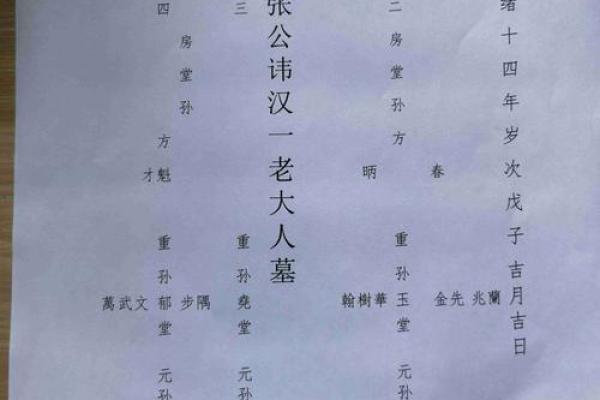 绪十四年岁次戊子吉月吉日
蘭兆先金
春
二房堂孙方
昞
重孙玉堂元孙
華樹翰
张公讳汉一老大人墓
三
重孙堯堂元孙
隅步
四房堂孙方
魁才
重孙郁堂元孙
文武萬